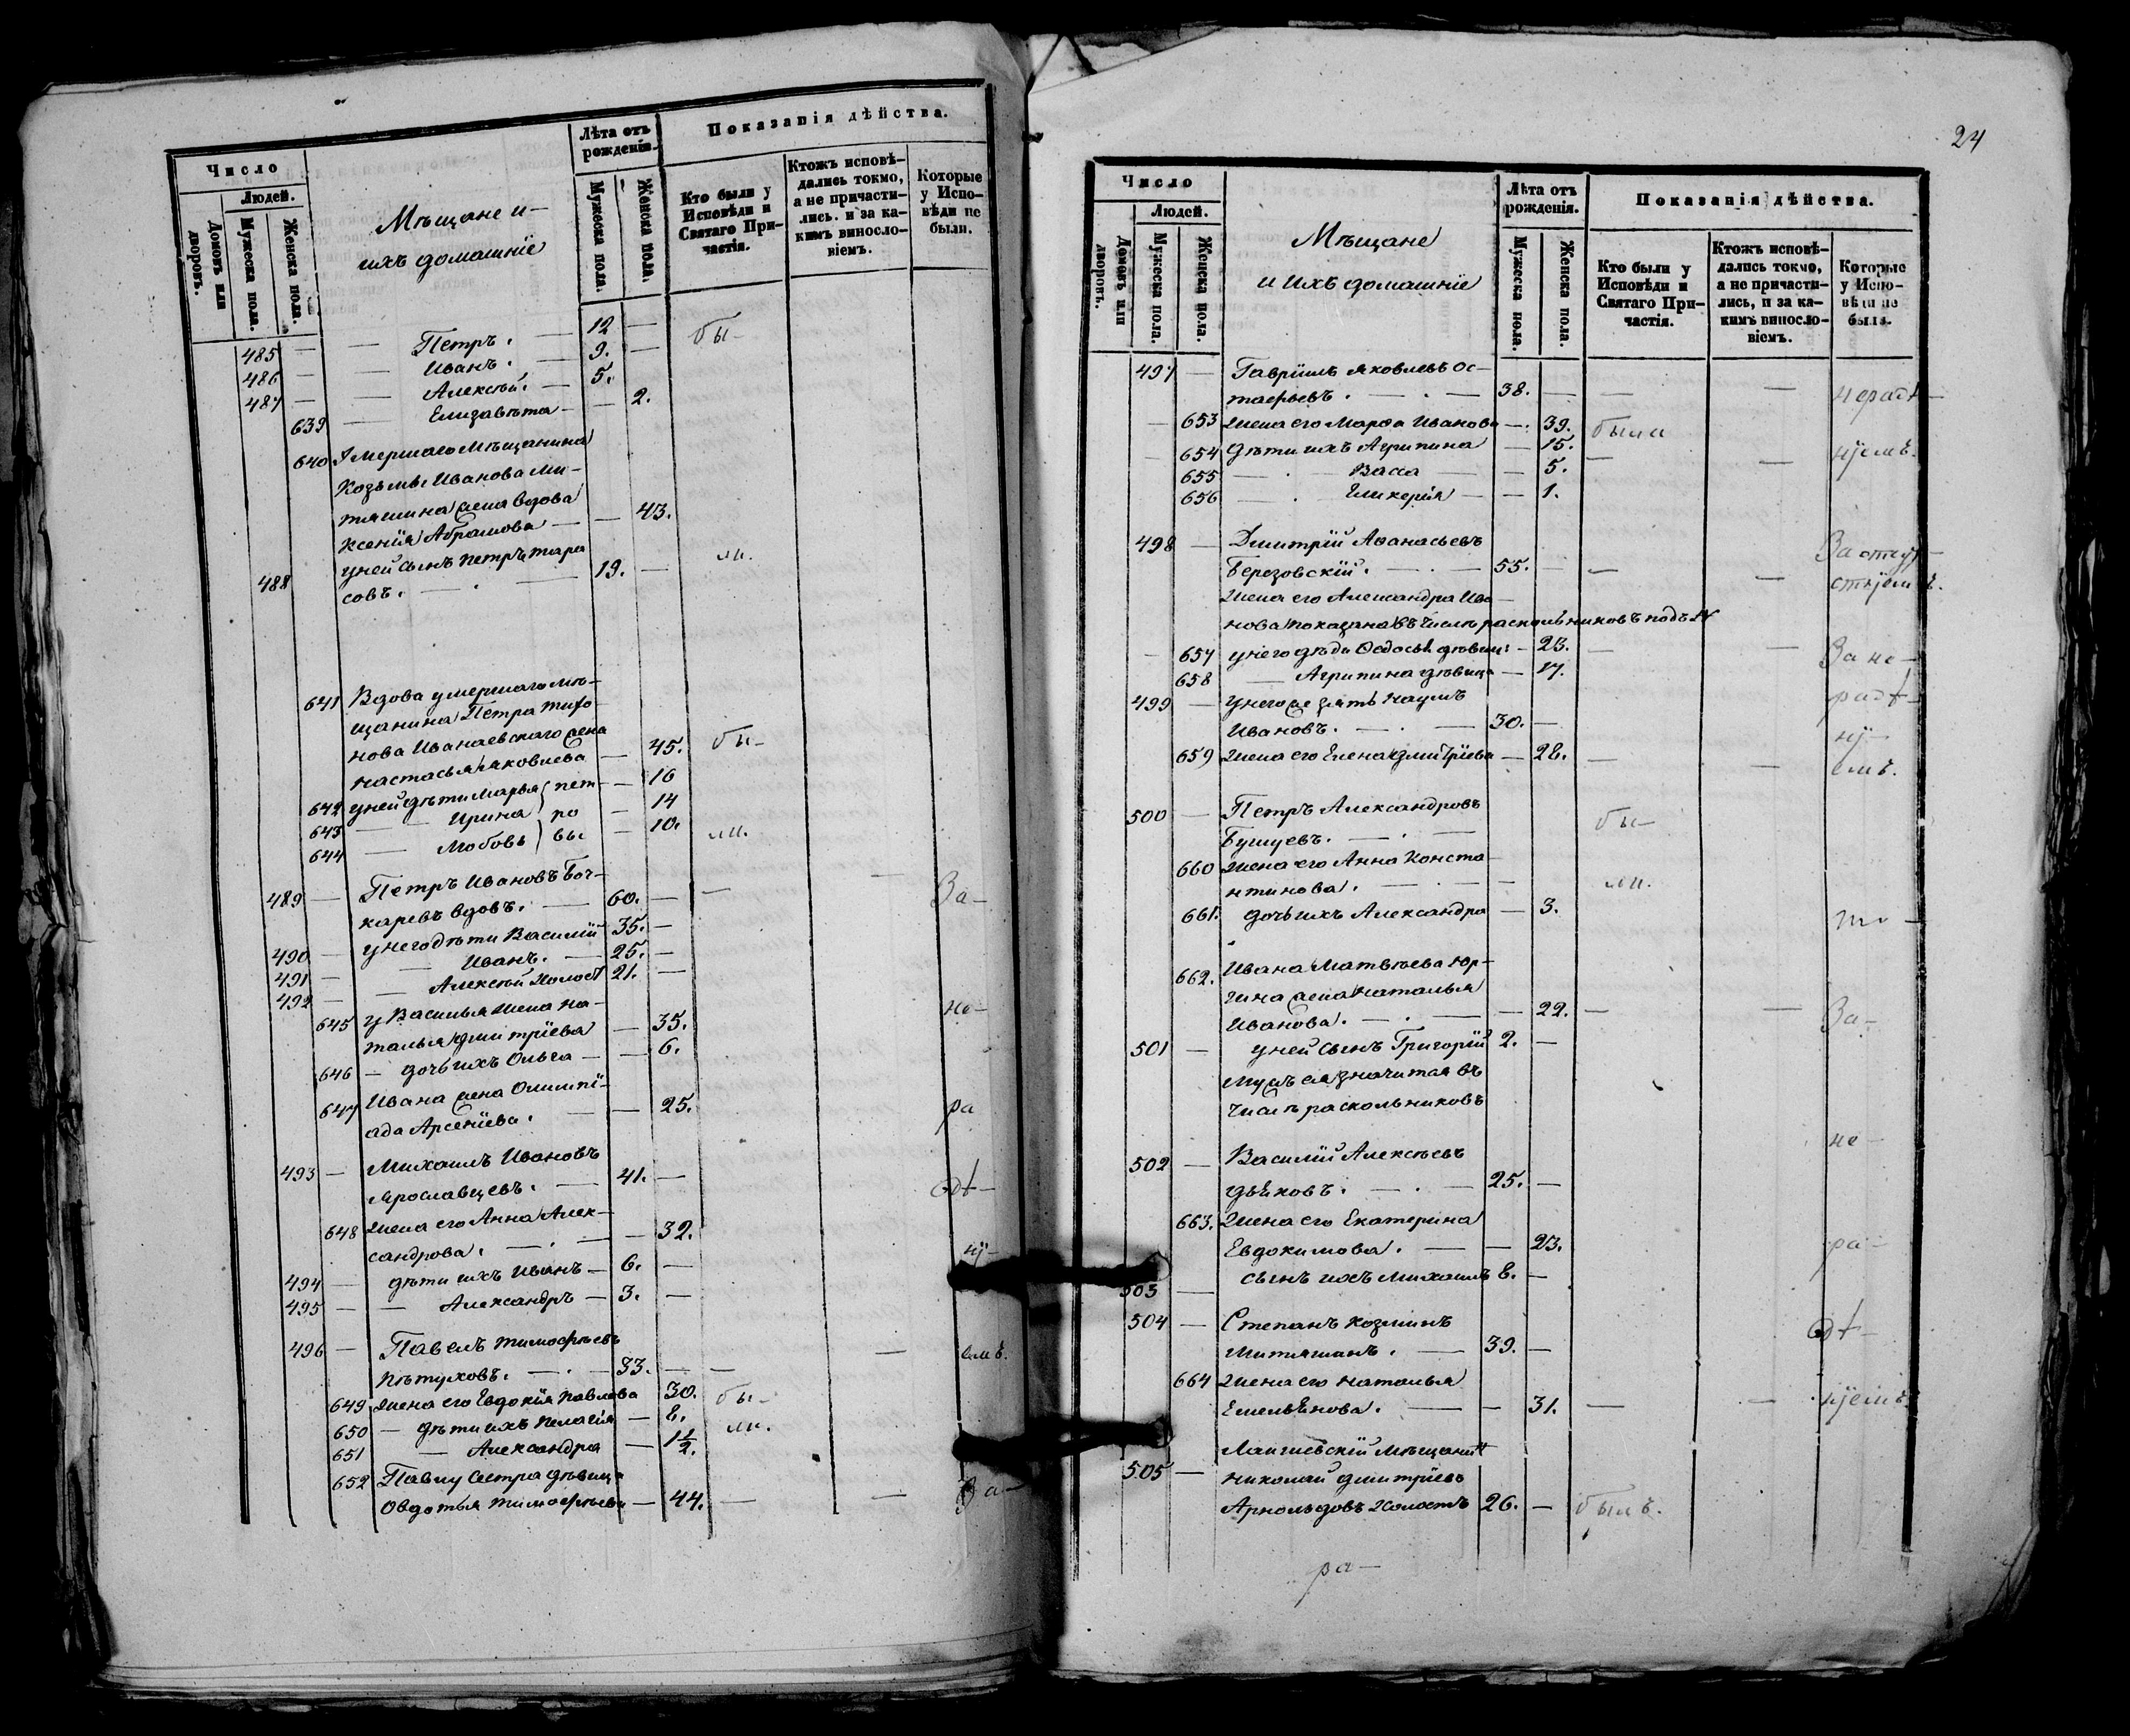 Число
Людей.
Домовъ или дворовъ.
Мужеска пола.
Женска пола.
Мѣщане и
ихъ домашнїе
Лѣта отъ рожденія.
Мужеска пола.
Женска пола.
Показанія дѣйства.
Кто были у Исповѣди и Святаго Причастія.
Ктожъ исповѣдались токмо, а не причастились. и за какимъ винословіемъ.
Которые у Исповѣди не были.
485 — — Петръ. — 12 — бы-
486 — — Иванъ. — 9. —
487 — — Алексѣй. — 5.
639 — Елизавѣта — — 2.
640 Умершаго Мѣщанина
Козьмы Иванова Ми-
тяшина жена вдова
Ксенїя Абрамова — — 43.
488 у ней сынъ Петръ тара
совъ. — . — 19. — ли.
641 Вдова умершаго мѣ-
щанина Петра Тихо
нова Иванаевскаго жена
Настасья Яковлева — 45. бы-
642 у ней дѣти Марья пет- — 16
643 — Ирина ро — 14
644 — Любовь вы — 10. ли.
489 — Петръ Ивановъ Боч-
каревъ вдовъ. — 60. — — — За-
490 — у него дѣти Василій 35. —
491 — — Иванъ. — 25. —
492 — — Алексѣй холост 21. —
645 у Василья жена На- не-
талья Дмитрїева — 35.
646 — дочь ихъ Ольга — — 6.
647 Ивана жена Олимпї-
ада Арсенїева. — — 25. ра
493 — Михаилъ Ивановъ
Ярославцевъ. — 41. — дѣ-
648 жена его Анна Алек-
сандрова. — . — — 32.
494 — дѣти ихъ Иванъ — 6. — нї-
495 — — Александръ — 3. —
496 — Павелъ Тимофѣевъ
Пѣтуховъ. — . — 33. — — — емъ.
649 жена его Евдокїя Павлова 30. бы-
650 — дѣти ихъ Пелагїя — 8. ли.
651 — Александра — 1½.
652 Павлу сестра дѣвица
Овдотья Тимофѣева — 44. — — За-
24
Число
Людей.
Домовъ или дворовъ.
Мужеска пола.
Женска пола.
Мѣщане
и ихъ домашнїе
Лѣта отъ рожденія.
Мужеска пола.
Женска пола.
Показанія дѣйства.
Кто были у Исповѣди и Святаго Причастія.
Ктожъ исповѣдались токмо, а не причастились, и за какимъ винословіемъ.
Которые у Исповѣди не были.
497 — Гаврїилъ Яковлевъ Ос-
тафьевъ. — . — 38. — — — нерадѣ-
653 жена его Марѳа Иванова — 39. были
654 дѣти ихъ Агрипина — 15. нїемъ.
655 — . Васса — — 5. — —
656 — . Гликерїя — — 1.
498 — Димитрїй Аѳанасьевъ За отсут-
Березовскїй. — . — 55. — — — ствїемъ.
жена его Александра Ива-
нова показана въ числѣ раскольниковъ подъ №
657 у него дѣти Ѳедосья дѣвиц: — 23. — — За не-
658 — Агрипина дѣвица — 17.
499 — у него же зять Наумъ радѣ-
Ивановъ. — . — 30. — нї-
659 жена его Елена Дмитрїева — 28. — — емъ.
500 — Петръ Александровъ
Бушуевъ. — . — бы-
660 жена его Анна Конста-
нтинова. — . — — ли.
661. дочь ихъ Александра — 3.
662. Ивана Матвѣева Юр-
гина жена Наталья
Иванова. — . — — 22. — — За-
501 — у ней сынъ Григорїй 2. —
Мужъ ея значится въ
числѣ раскольниковъ
не-
502 — Василїй Алексѣевъ
Дьяковъ. — . — 25. —
663. жена его Екатерина
Евдокимова. — — 23. ра-
503 — сынъ ихъ Михаилъ 8. —
504 — Степанъ Козминъ дѣ-
Митяшинъ. — 39. —
664 жена его Наталья
Емельянова. — — 31. — — нїемъ.
Лаишевскїй Мѣщанинъ
505 — Николай Дмитрїевъ
Арнольдовъ холостъ 26. — былъ.
ра-